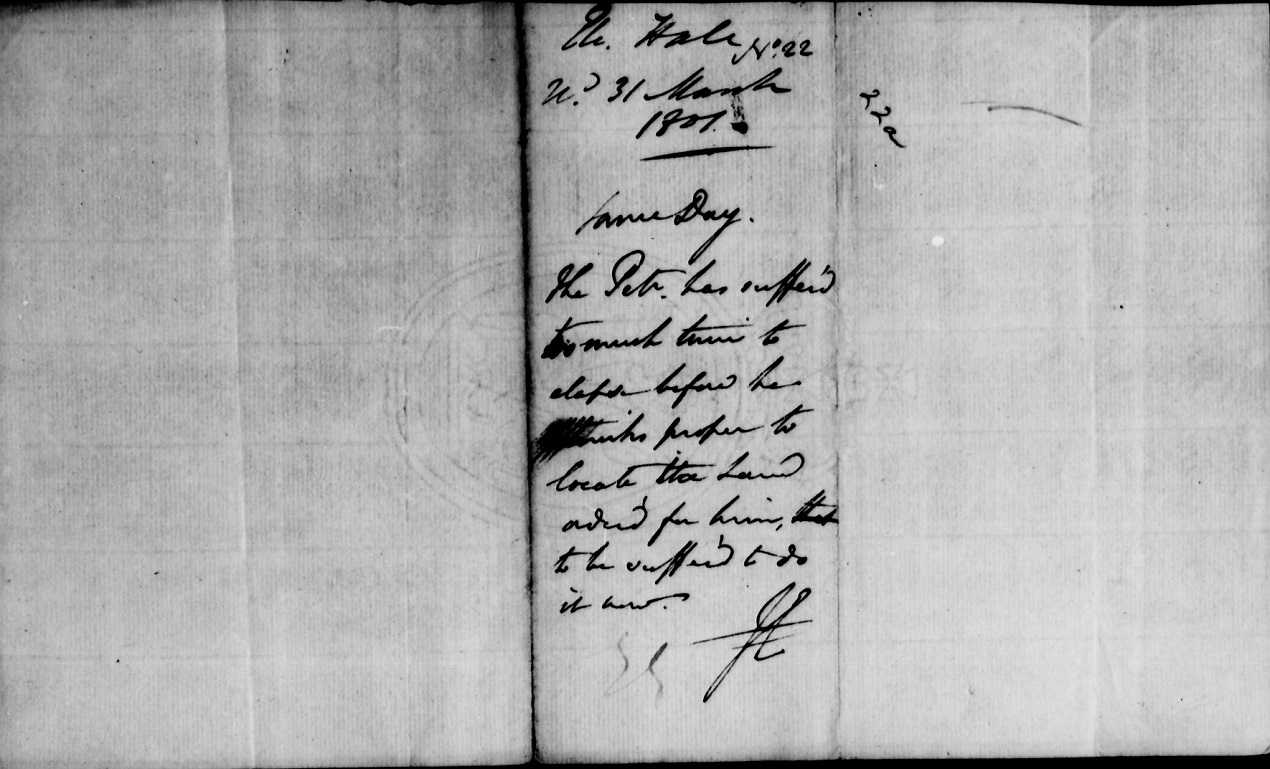 Hale No. 22
Rd. 31 March
1801.
Same Day.
The Petr. has suffer'd
too much time to
elapse before he
thinks proper to
locate the Land
order'd for him, that
to be suffer'd to do
it now.
JE
22a